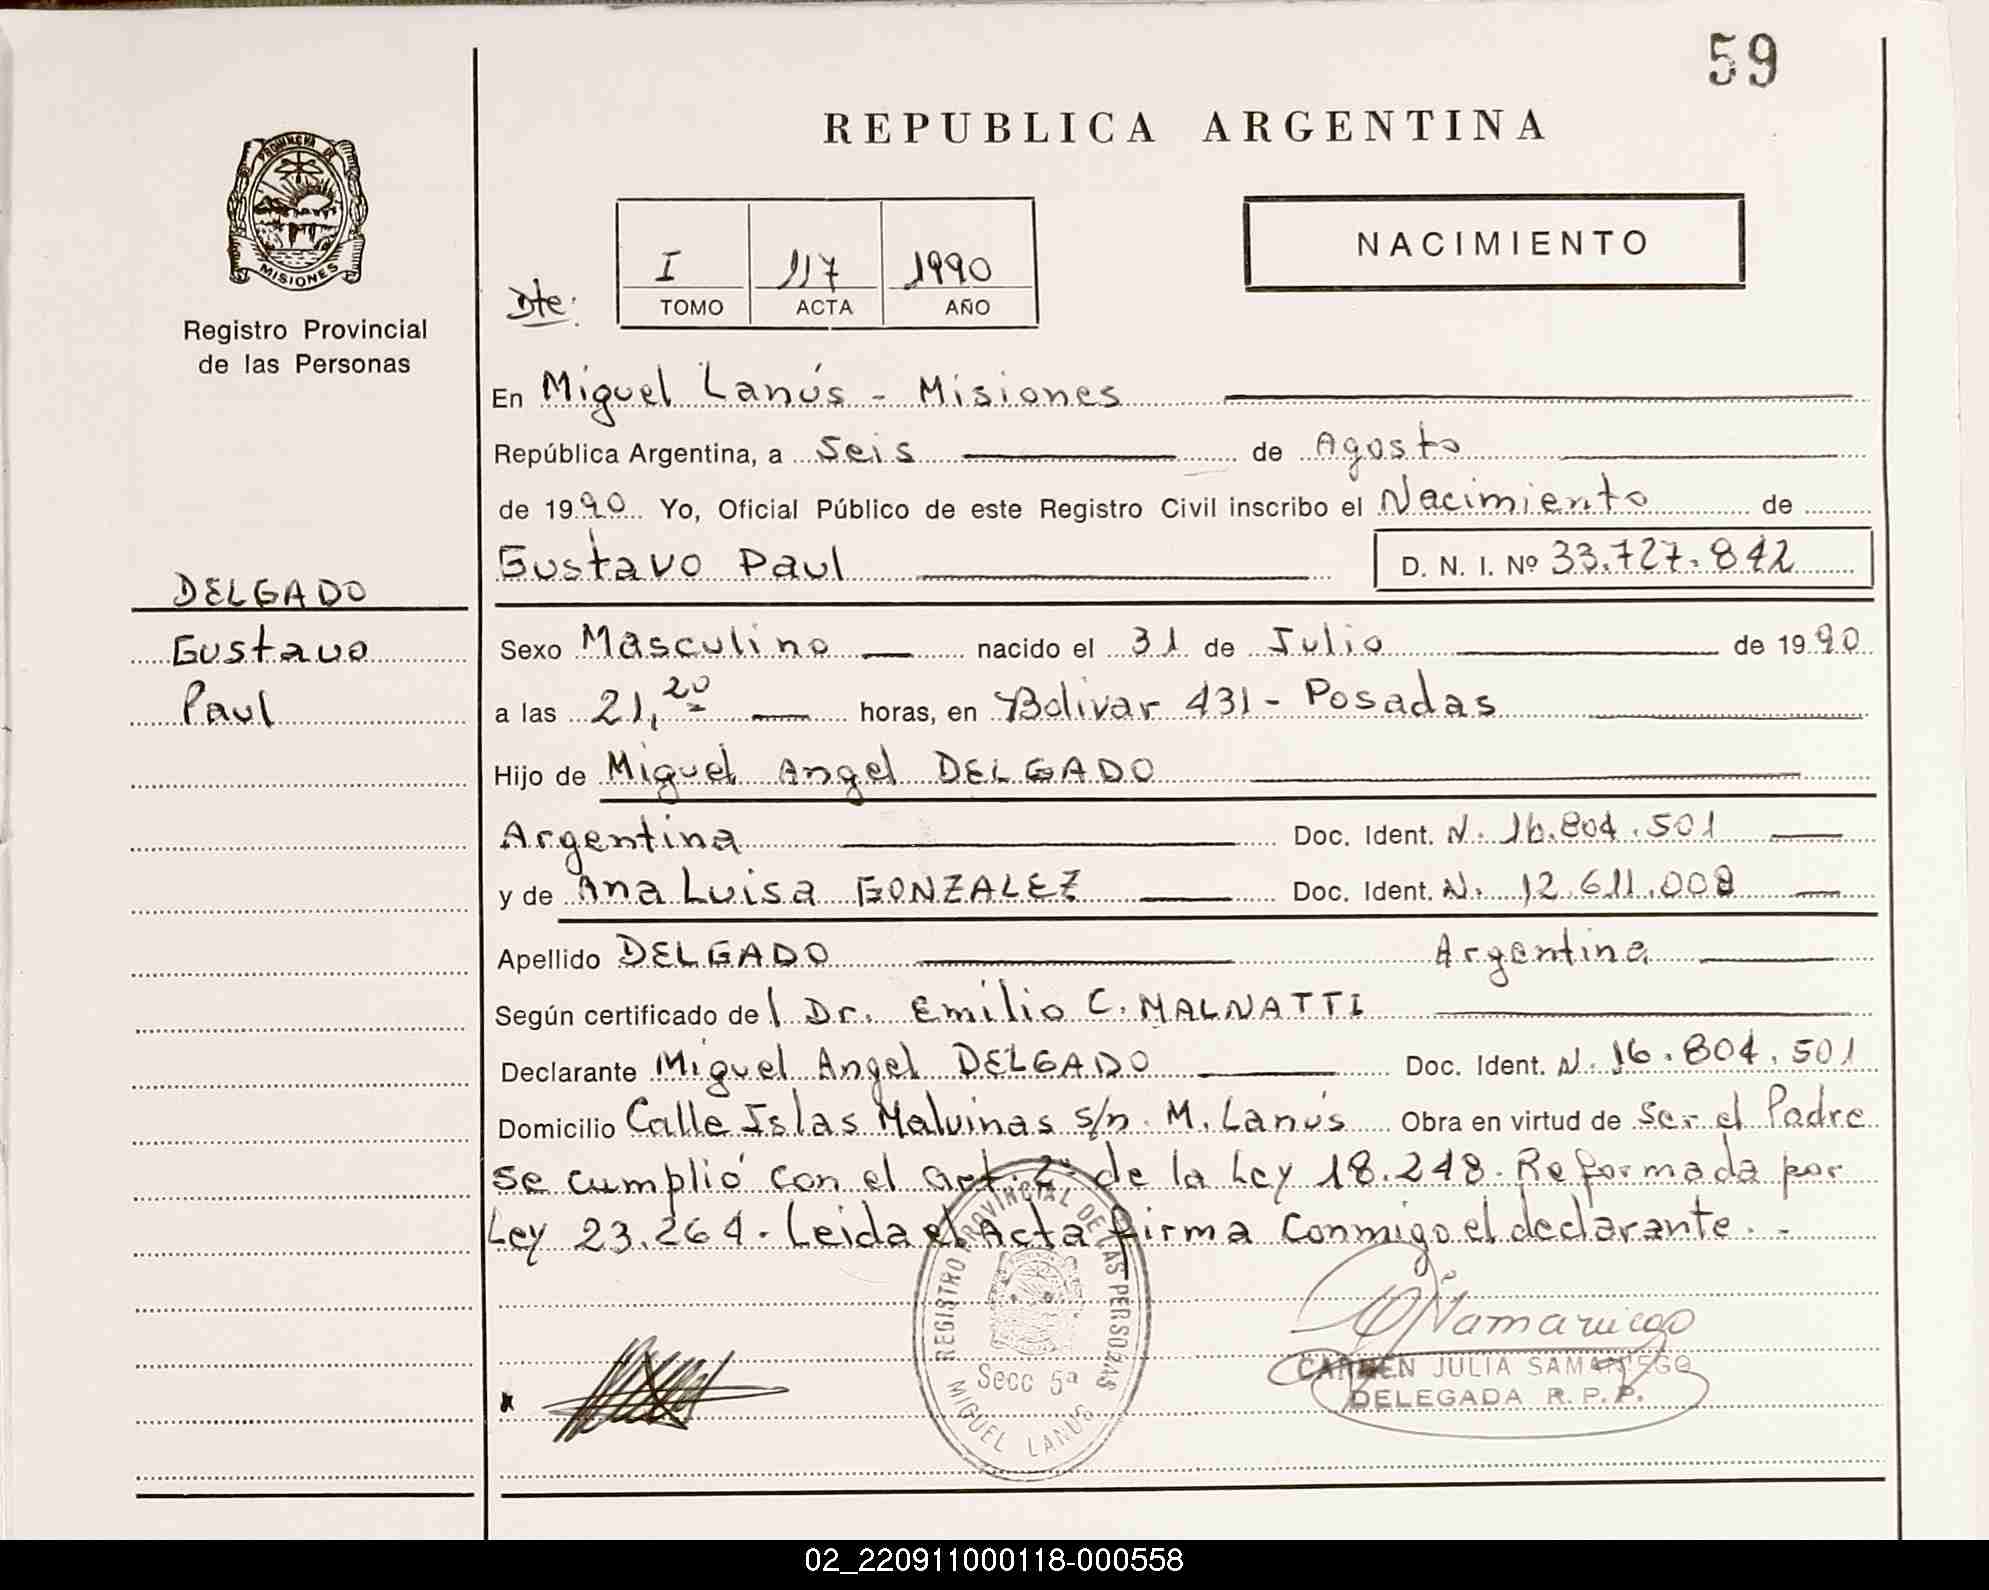 59
REPUBLICA ARGENTINA
PROVINCIA DE
MISIONES
Registro Provincial
de las Personas
NACIMIENTO
Dte: I 117 1990
TOMO ACTA AÑO
En Miguel Lanús - Misiones
República Argentina, a Seis de Agosto
de 1990 Yo, Oficial Público de este Registro Civil inscribo el Nacimiento de
Gustavo Paul D. N. I. Nº 33.727.842
DELGADO
Gustavo
Paul
Sexo Masculino nacido el 31 de Julio de 1990
a las 21,20 horas, en Bolivar 431 - Posadas
Hijo de Miguel Angel DELGADO
Argentina Doc. Ident. N. 16.804.501
y de Ana Luisa GONZALEZ Doc. Ident. N. 12.611.008
Apellido DELGADO Argentina
Según certificado del Dr. Emilio C. MALNATTI
Declarante Miguel Angel DELGADO Doc. Ident. N. 16.804.501
Domicilio Calle Islas Malvinas s/n. M. Lanús Obra en virtud de Ser el Padre
se cumplió con el art. 2º de la Ley 18.248. Reformada por
Ley 23.264. Leida el Acta firma conmigo el declarante. -
REGISTRO PROVINCIAL DE LAS PERSONAS
Secc 5ª
MIGUEL LANUS
CARMEN JULIA SAMANIEGO
DELEGADA R. P. P.
02_220911000118-000558